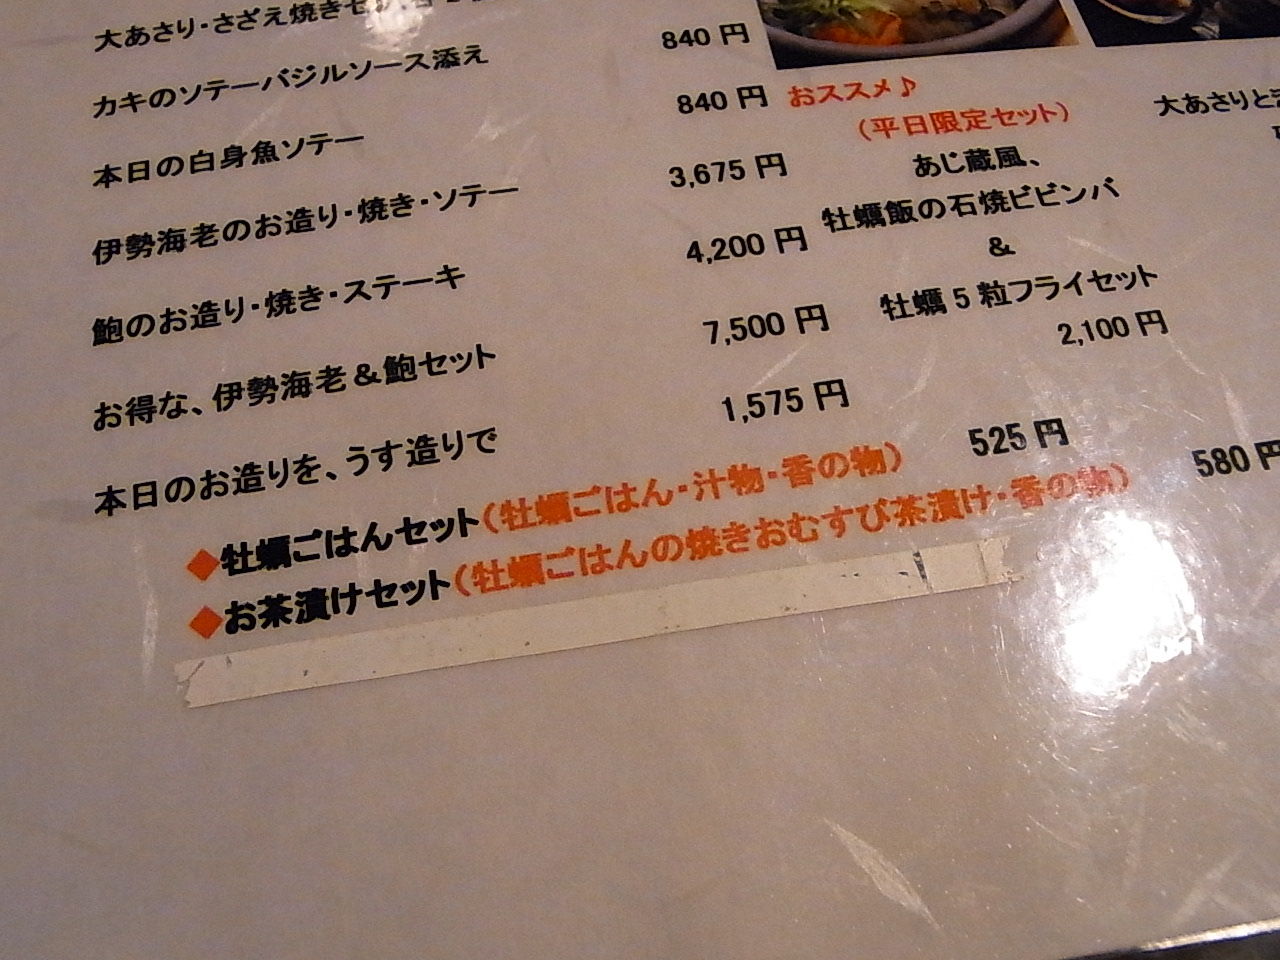 大あさり・さざえ焼きセ
カキのソテーバジルソース添え 840 円
本日の白身魚ソテー 840 円
伊勢海老のお造り・焼き・ソテー 3,675 円
鮑のお造り・焼き・ステーキ 4,200 円
お得な、伊勢海老＆鮑セット 7,500 円
本日のお造りを、うす造りで 1,575 円
◆牡蠣ごはんセット（牡蠣ごはん・汁物・香の物） 525 円
◆お茶漬けセット（牡蠣ごはんの焼きおむすび茶漬け・香の物） 580 円
おススメ♪
（平日限定セット）
あじ蔵風、
牡蠣飯の石焼ビビンバ
＆
牡蠣５粒フライセット
2,100 円
大あさりと